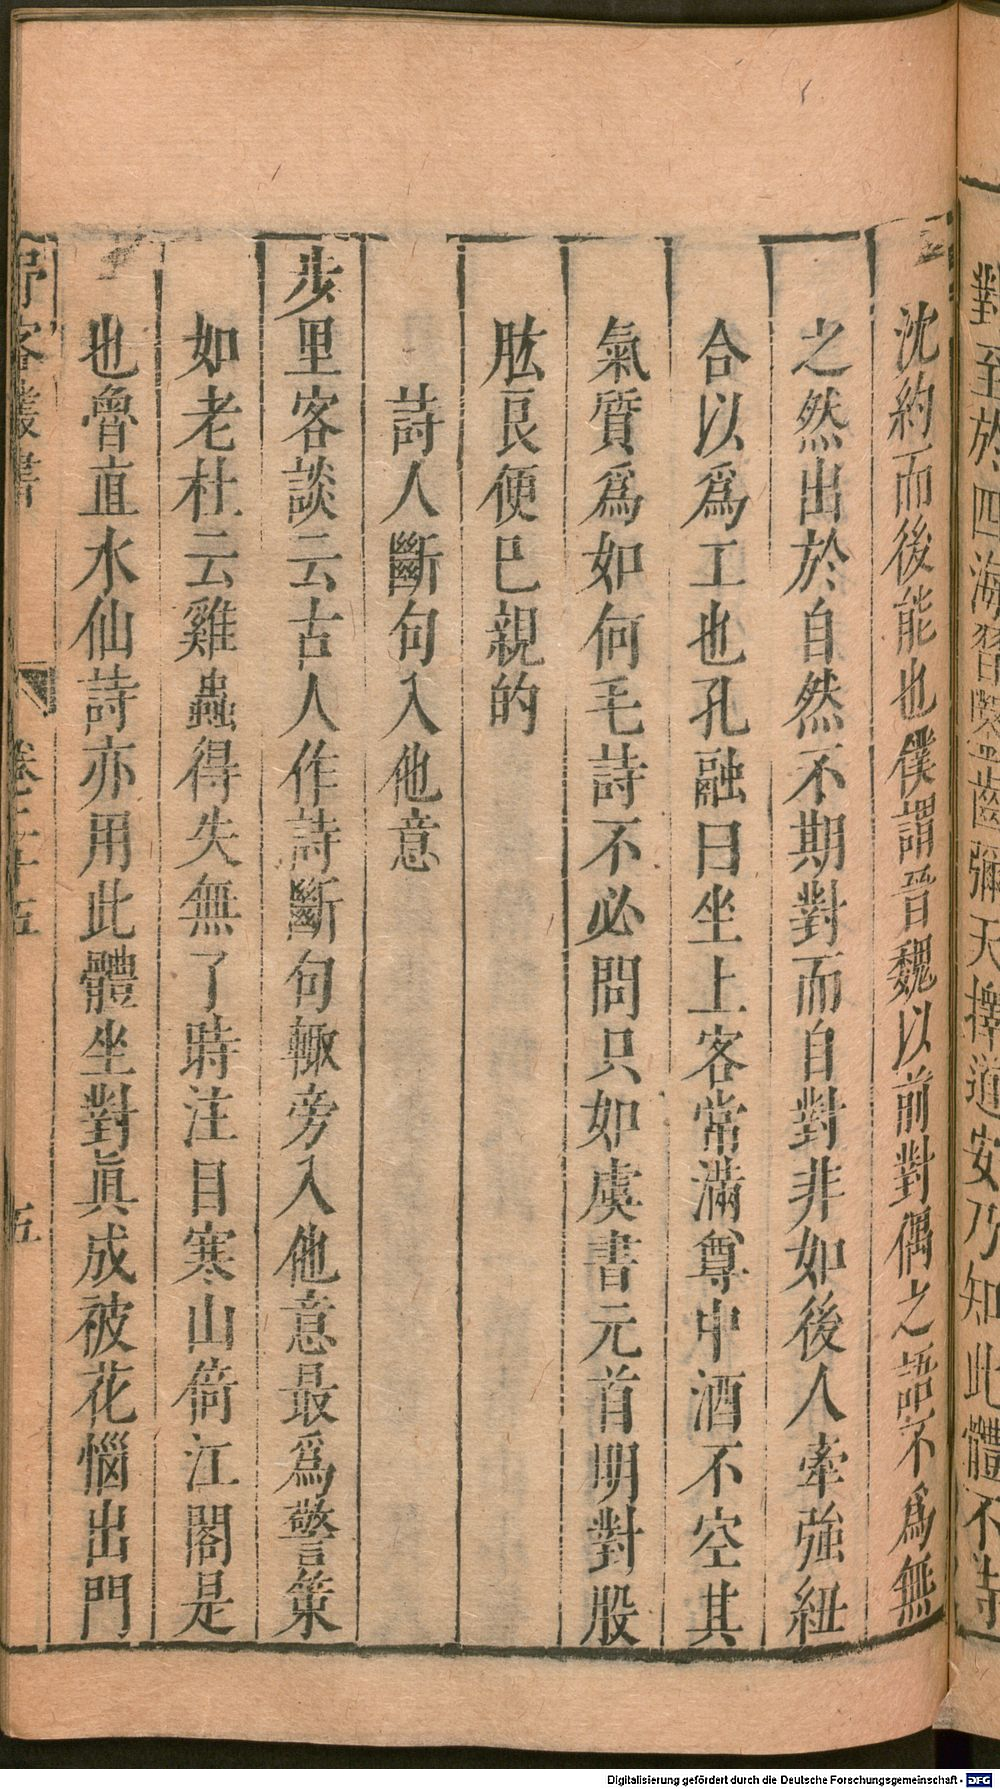 對至於四海習鑿齒彌天釋道安乃知此體不待
沈約而後能也僕謂晉魏以前對偶之語不爲無
之然出於自然不期對而自對非如後人牽強紐
合以爲工也孔融曰坐上客常滿尊中酒不空其
氣質爲如何毛詩不必問只如虞書元首明對股
肱良便巳親的
詩人斷句入他意
步里客談云古人作詩斷句輙旁入他意最爲警策
如老杜云雞蟲得失無了時注目寒山倚江閣是
也魯直水仙詩亦用此體坐對眞成被花惱出門
野客叢書 卷二十五 五
Digitalisierung gefördert durch die Deutsche Forschungsgemeinschaft - DFG